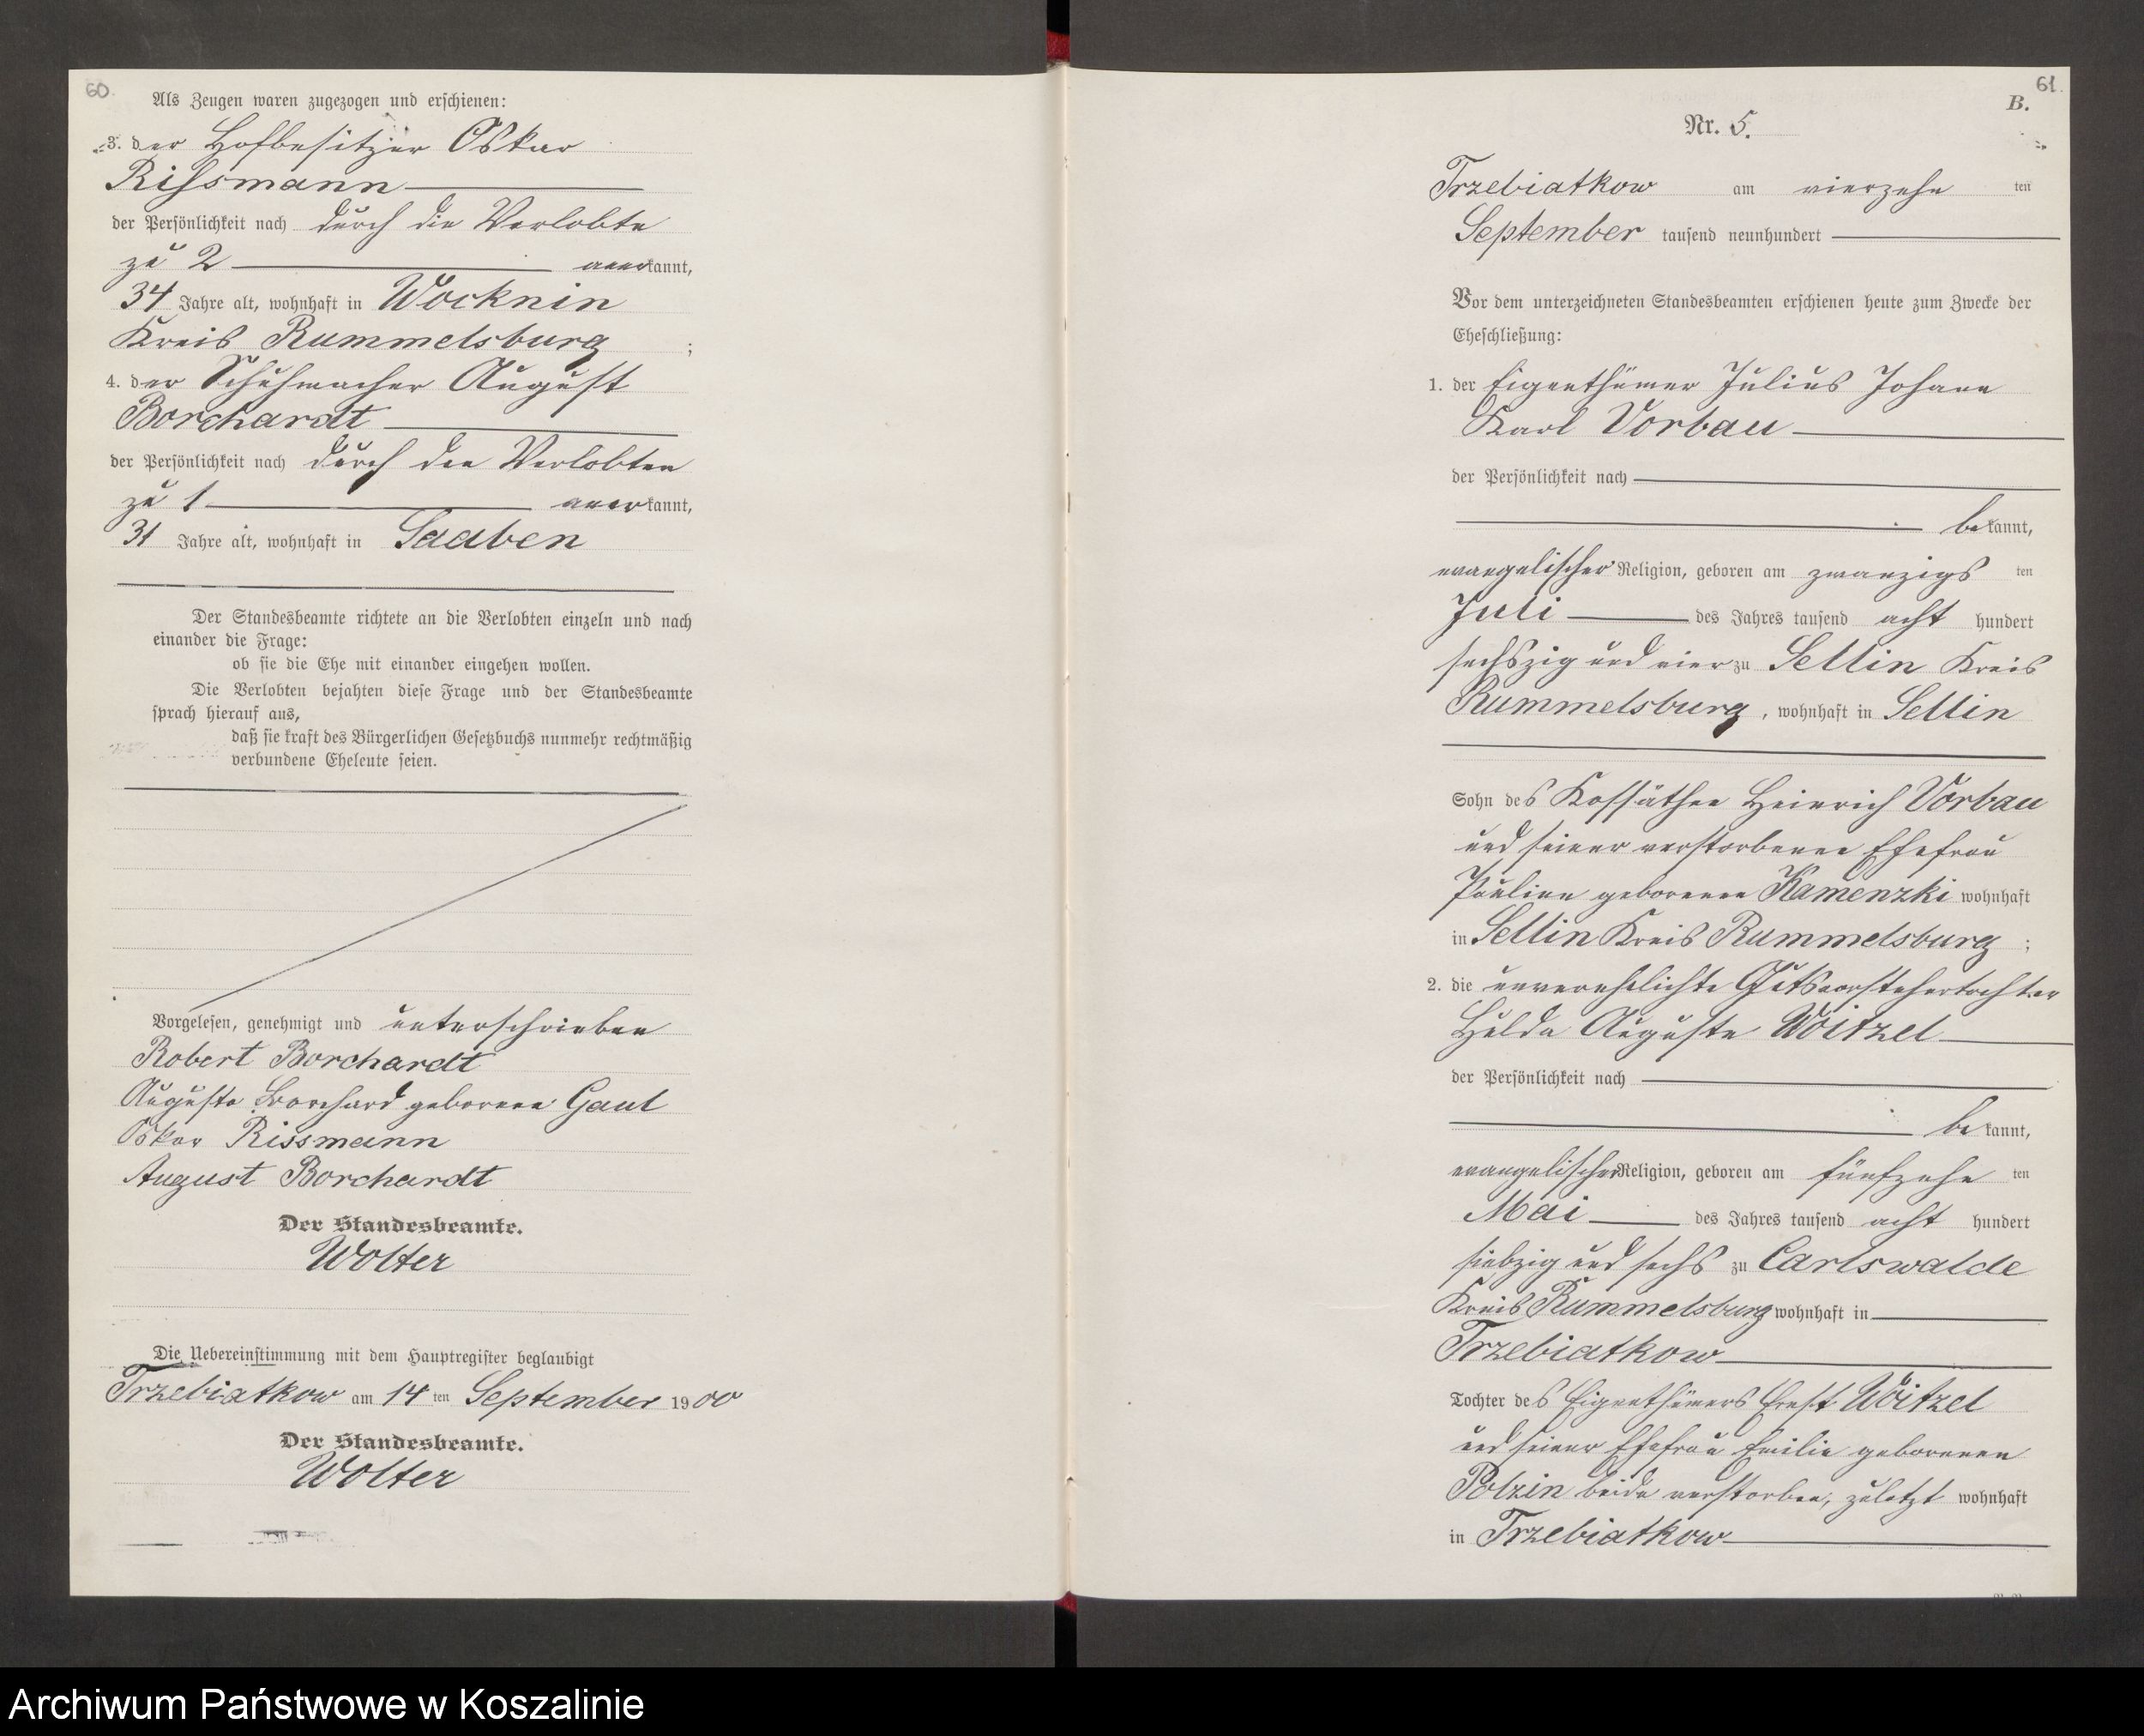 60.
Als Zeugen waren zugezogen und erschienen:
3. der Hofbesitzer Oskar
Rissmann
der Persönlichkeit nach durch die Verlobte
zu 2 anerkannt,
34 Jahre alt, wohnhaft in Wocknin
Kreis Rummelsburg ;
4. der Schuhmacher August
Borchardt
der Persönlichkeit nach durch den Verlobten
zu 1 anerkannt,
31 Jahre alt, wohnhaft in Saaben
Der Standesbeamte richtete an die Verlobten einzeln und nach
einander die Frage:
ob sie die Ehe mit einander eingehen wollen.
Die Verlobten bejahten diese Frage und der Standesbeamte
sprach hierauf aus,
daß sie kraft des Bürgerlichen Gesetzbuchs nunmehr rechtmäßig
verbundene Eheleute seien.
Vorgelesen, genehmigt und unterschrieben
Robert Borchardt
Auguste Borchard geborene Gaul
Oskar Rissmann
August Borchardt
Der Standesbeamte.
Wolter
Die Uebereinstimmung mit dem Hauptregister beglaubigt
Trzebiatkow am 14 ten September 1900
Der Standesbeamte.
Wolter
61.
B.
Nr. 5.
Trzebiatkow am vierzehn ten
September tausend neunhundert
Vor dem unterzeichneten Standesbeamten erschienen heute zum Zwecke der
Eheschließung:
1. der Eigenthümer Julius Johann
Karl Vorbau
der Persönlichkeit nach
bekannt,
evangelischer Religion, geboren am zwanzigs ten
Juli des Jahres tausend acht hundert
sechszig und vier zu Sellin Kreis
Rummelsburg, wohnhaft in Sellin
Sohn des Kossäthen Heinrich Vorbau
und seiner verstorbenen Ehefrau
Pauline geborenen Kamenzki wohnhaft
in Sellin Kreis Rummelsburg ;
2. die unverehelichte Gutsvorstehertochter
Hulda Auguste Woitzel
der Persönlichkeit nach
bekannt,
evangelischer Religion, geboren am fünfzehn ten
Mai des Jahres tausend acht hundert
siebzig und sechs zu Carlswalde
Kreis Rummelsburg wohnhaft in
Trzebiatkow
Tochter des Eigenthümers Ernst Woitzel
und seiner Ehefrau Emilie geborenen
Polzin beide verstorben, zuletzt wohnhaft
in Trzebiatkow
Archiwum Państwowe w Koszalinie